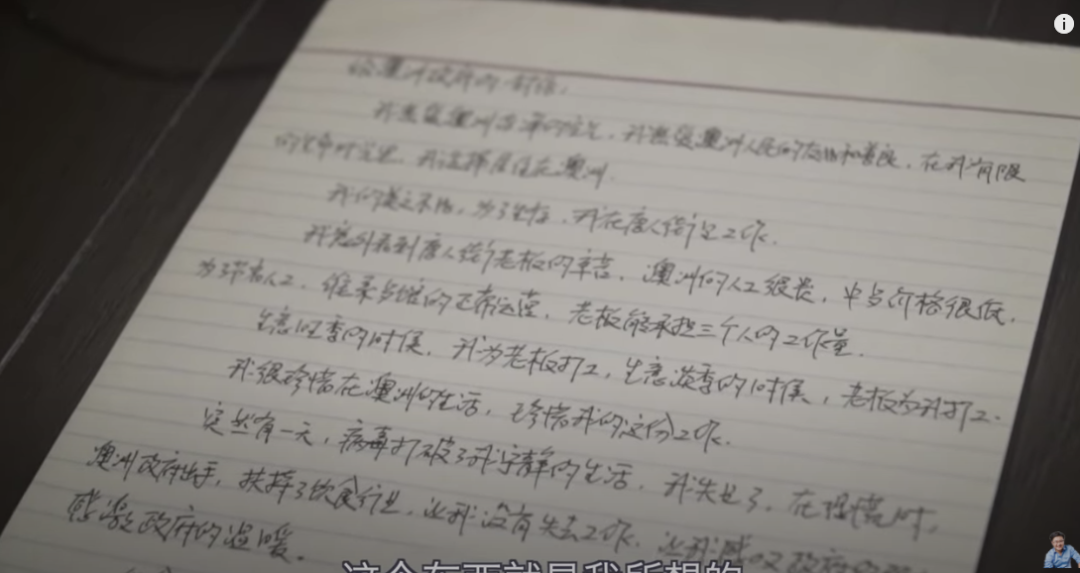 给澳洲政府的一封信：
我热爱澳洲，我热爱澳洲人民的友好和善良，在我有限
的生命时光里，我选择居住在澳洲。
我的英文不好，为了生存，我在唐人街谋生工作。
我意外看到唐人街老板的辛苦，澳洲的人工很贵，中午价格很低，
为了节省人工，维系当地的正常运营，老板能承担三个人的工作量。
生意旺季的时候，我为老板打工，生意淡季的时候，老板为我打工。
我很珍惜在澳洲的生活，珍惜我的这份工作。
突然有一天，病毒打破了我宁静的生活，我失业了，在恐慌时，
澳洲政府出手，扶持了饮食行业，让我没有失去工作，让我感
感激政府的温暖。
这个东西就是我所想的